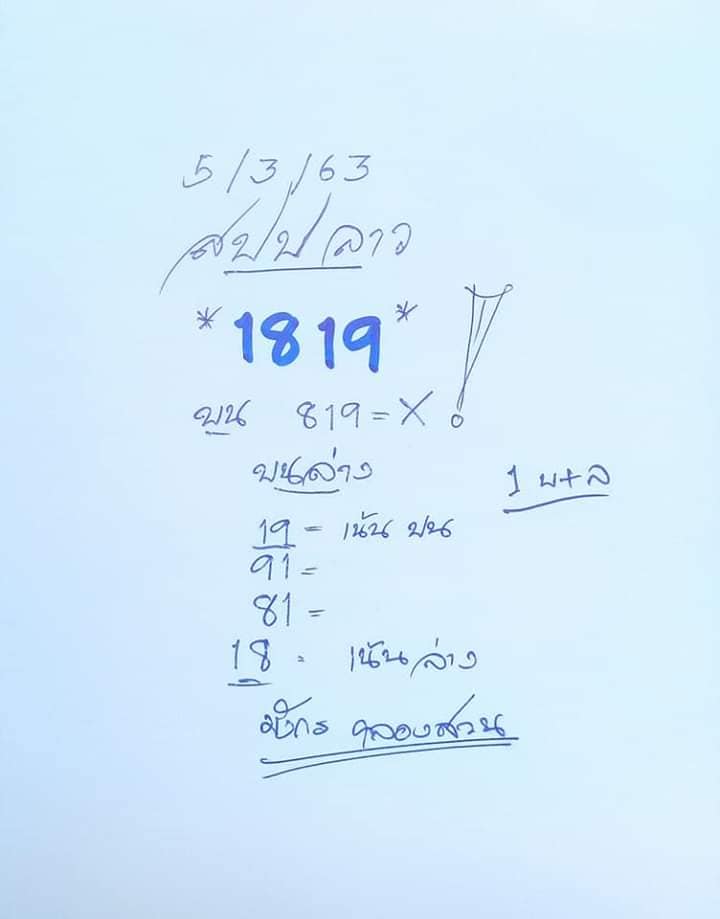 5/3/63
สปป ลาว
*1819*
บน 819 = X
บนล่าง
1 บ+ล
19 = เน้น บน
91 =
81 =
18 = เน้นล่าง
มังกร คลองสวน